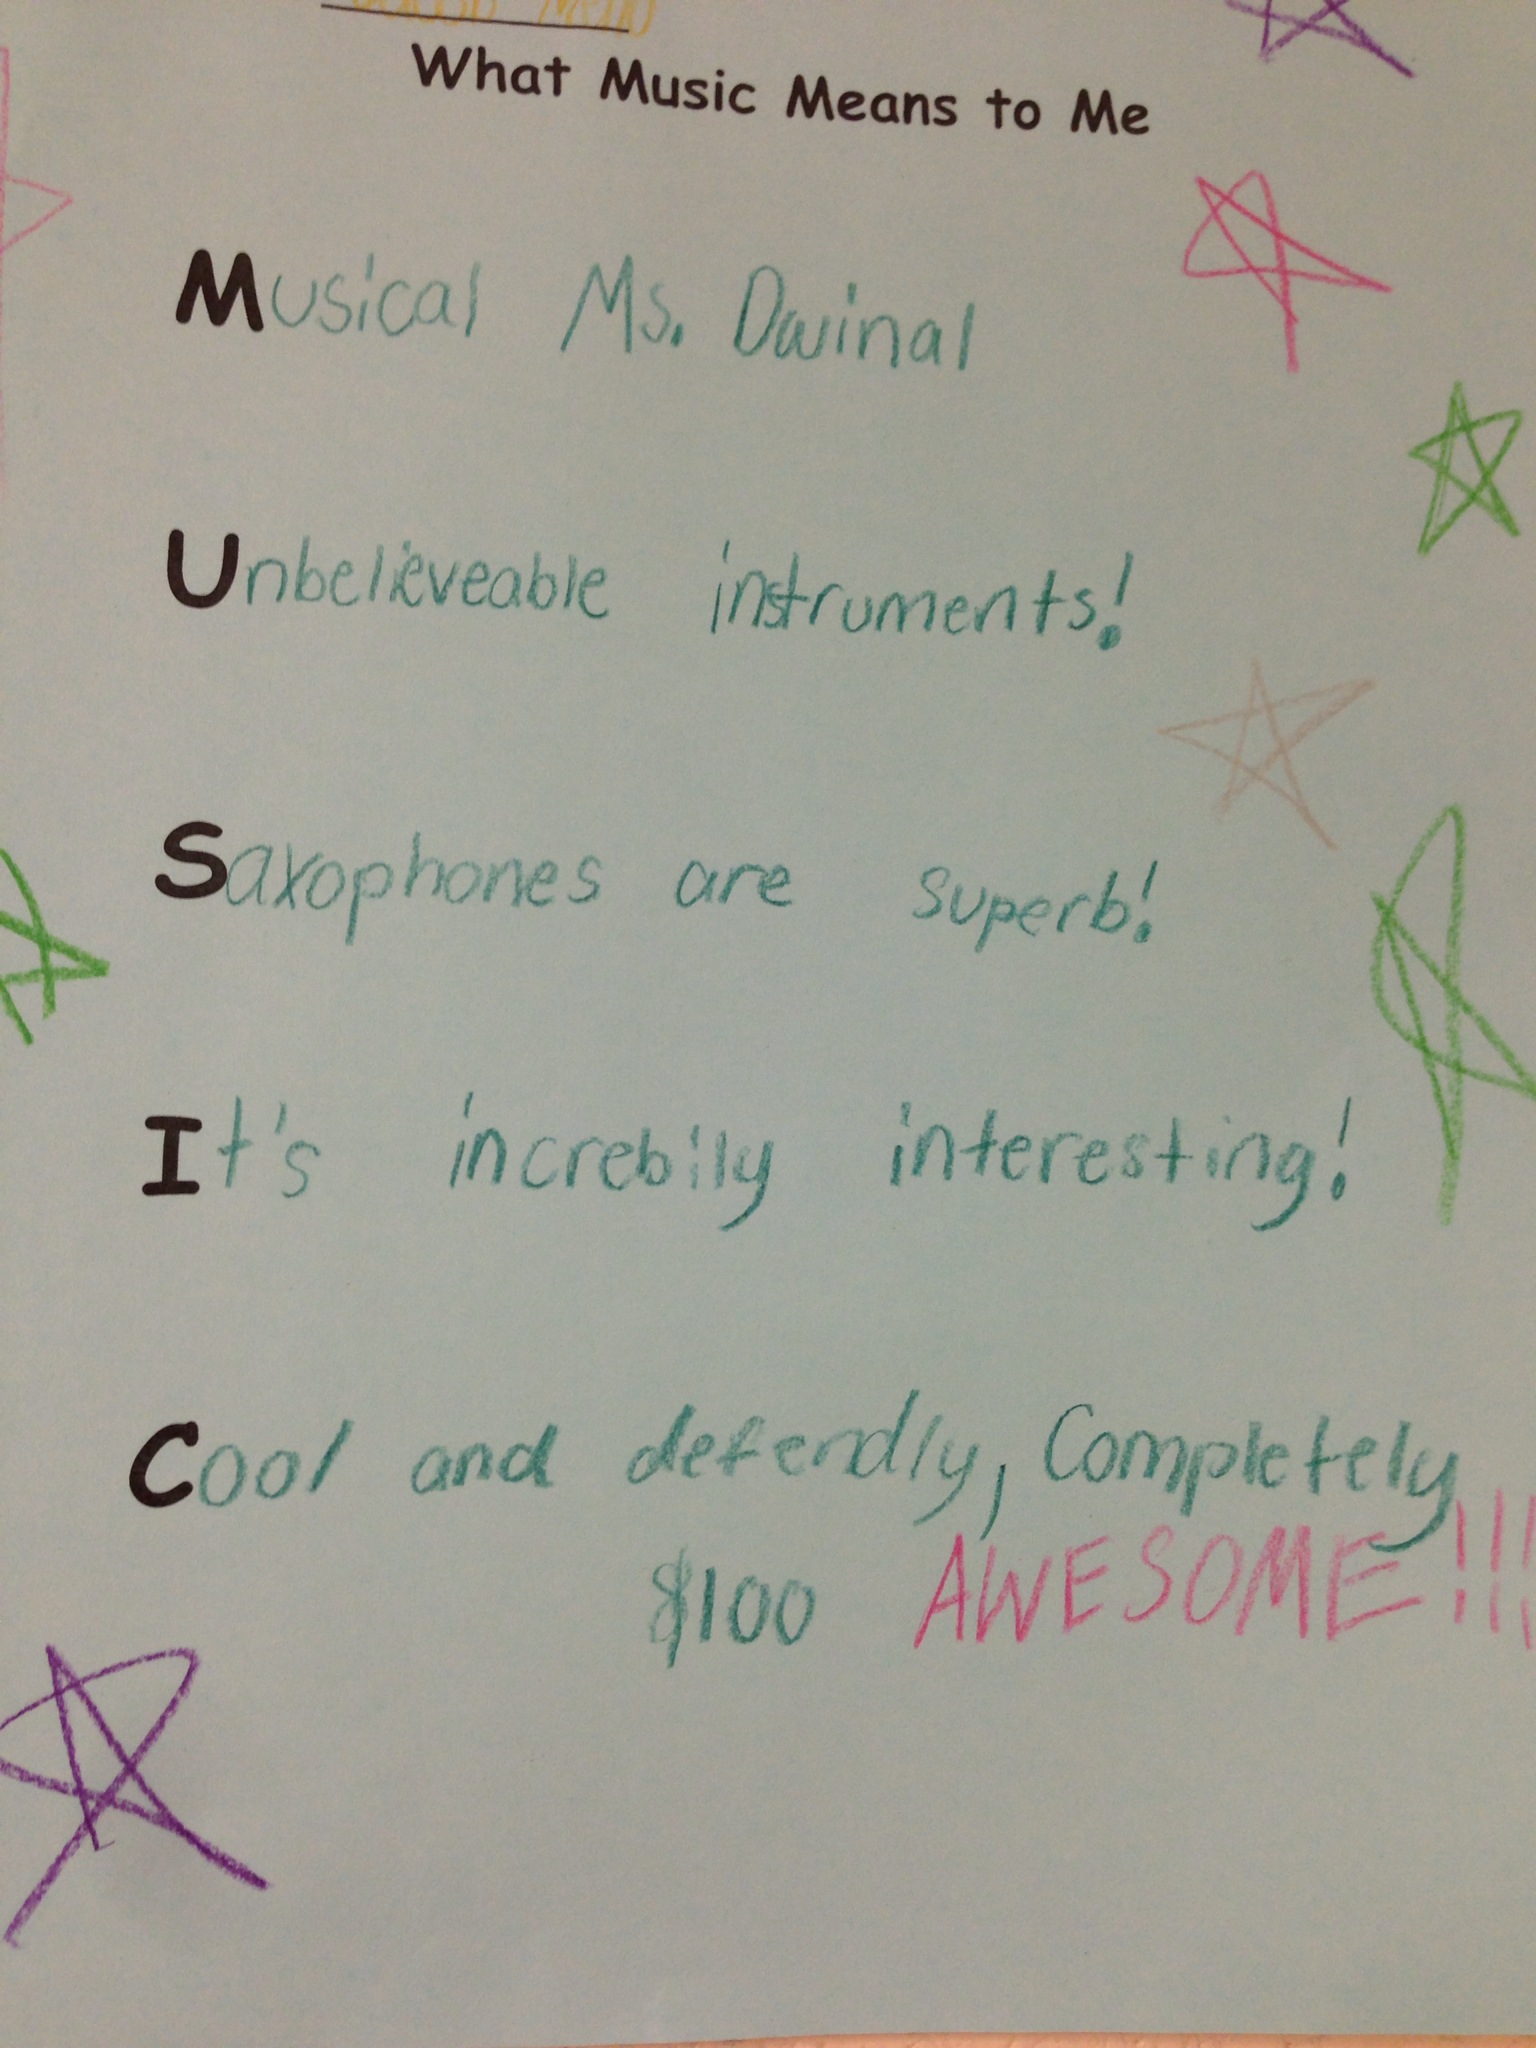 What Music Means to Me
Musical Ms. Dwinal
Unbelieveable instruments!
Saxophones are superb!
It's increbily interesting!
Cool and defendly, Completely
$100 AWESOME!!!